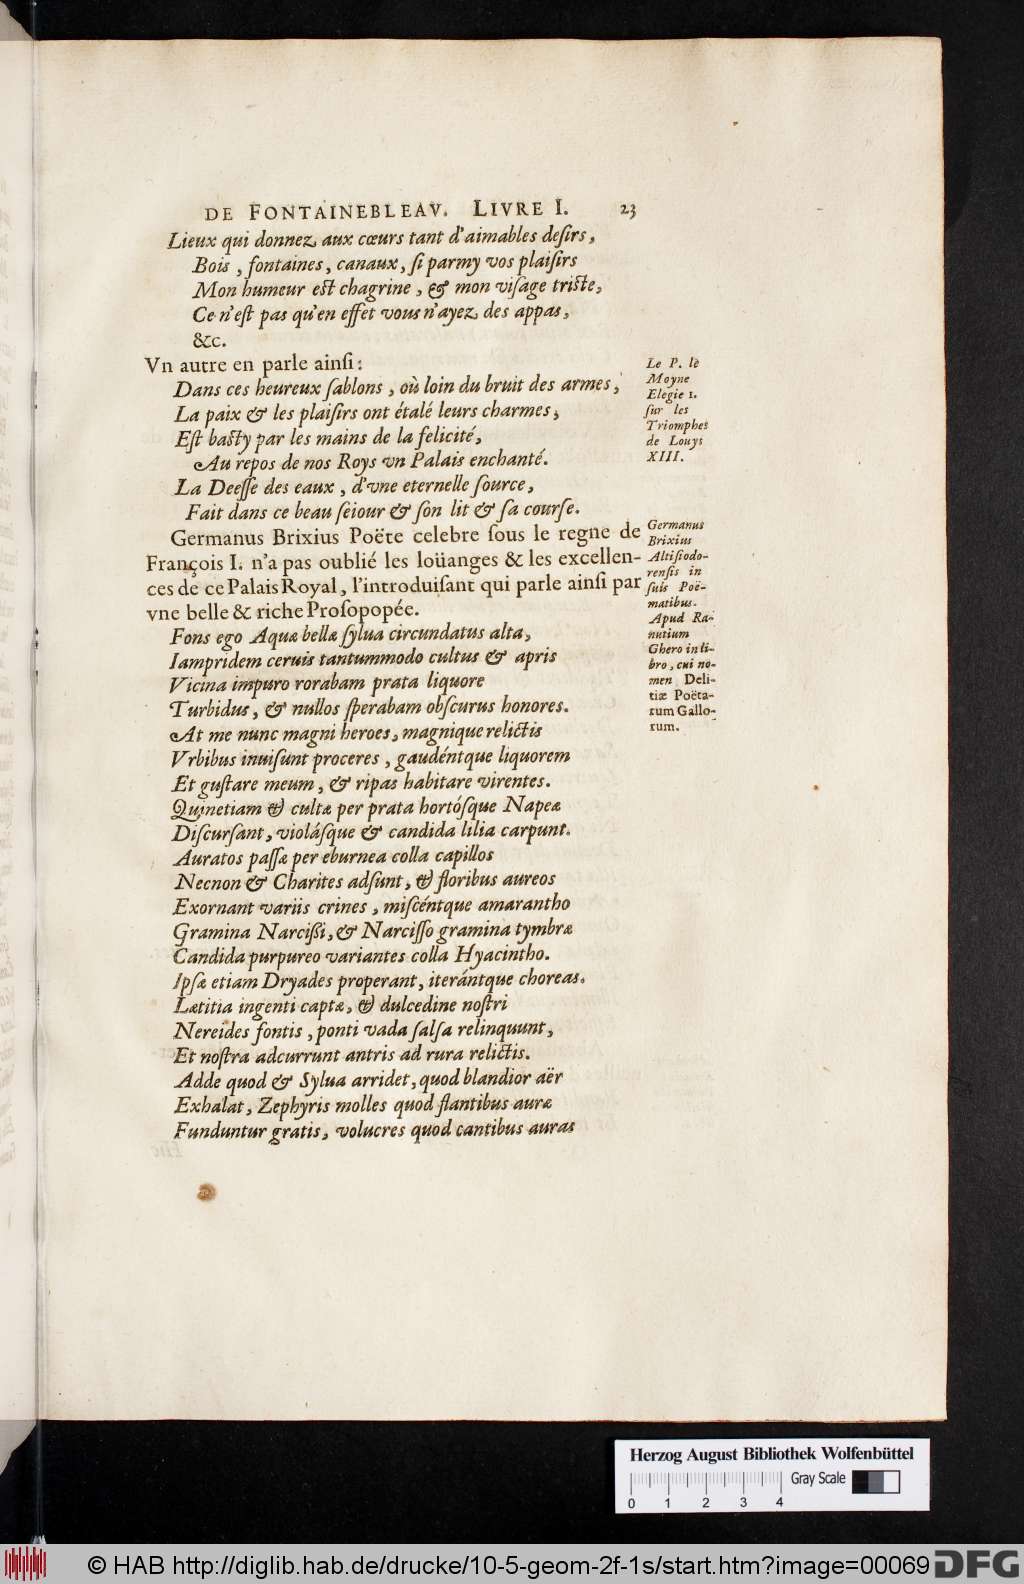 DE FONTAINEBLEAV. LIVRE I. 23
Lieux qui donnez aux cœurs tant d'aimables deſirs,
Bois, fontaines, canaux, ſi parmy vos plaiſirs
Mon humeur eſt chagrine, & mon viſage triſte,
Ce n'eſt pas qu'en effet vous n'ayez des appas,
&c.
Vn autre en parle ainſi:
Dans ces heureux ſablons, où loin du bruit des armes,
La paix & les plaiſirs ont étalé leurs charmes,
Eſt baſty par les mains de la felicité,
Au repos de nos Roys vn Palais enchanté.
La Deeſſe des eaux, d'vne eternelle ſource,
Fait dans ce beau ſeiour & ſon lit & ſa courſe.
Le P. le
Moyne
Elegie 1.
ſur les
Triomphes
de Louys
XIII.
Germanus Brixius Poëte celebre ſous le regne de
François I. n'a pas oublié les loüanges & les excellen-
ces de ce Palais Royal, l'introduiſant qui parle ainſi par
vne belle & riche Proſopopée.
Germanus
Brixius
Altiſiodo-
renſis in
ſuis Poë-
matibus.
Apud Ra-
nutium
Ghero in li-
bro, cui no-
men Deli-
tiæ Poëta-
rum Gallo-
rum.
Fons ego Aquæ bellæ ſylua circundatus alta,
Iampridem ceruis tantummodo cultus & apris
Vicina impuro rorabam prata liquore
Turbidus, & nullos ſperabam obſcurus honores.
At me nunc magni heroes, magnique relictis
Vrbibus inuiſunt proceres, gaudéntque liquorem
Et guſtare meum, & ripas habitare virentes.
Quinetiam & cultæ per prata hortóſque Napeæ
Diſcurſant, violáſque & candida lilia carpunt.
Auratos paſſæ per eburnea colla capillos
Necnon & Charites adſunt, & floribus aureos
Exornant variis crines, miſcéntque amarantho
Gramina Narciſſi, & Narciſſo gramina tymbræ
Candida purpureo variantes colla Hyacintho.
Ipſæ etiam Dryades properant, iterántque choreas.
Lætitia ingenti captæ, & dulcedine noſtri
Nereides fontis, ponti vada ſalſa relinquunt,
Et noſtra adcurrunt antris ad rura relictis.
Adde quod & Sylua arridet, quod blandior aër
Exhalat, Zephyris molles quod flantibus auræ
Funduntur gratis, volucres quod cantibus auras
Herzog August Bibliothek Wolfenbüttel
Gray Scale
0 1 2 3 4
© HAB http://diglib.hab.de/drucke/10-5-geom-2f-1s/start.htm?image=00069
DFG